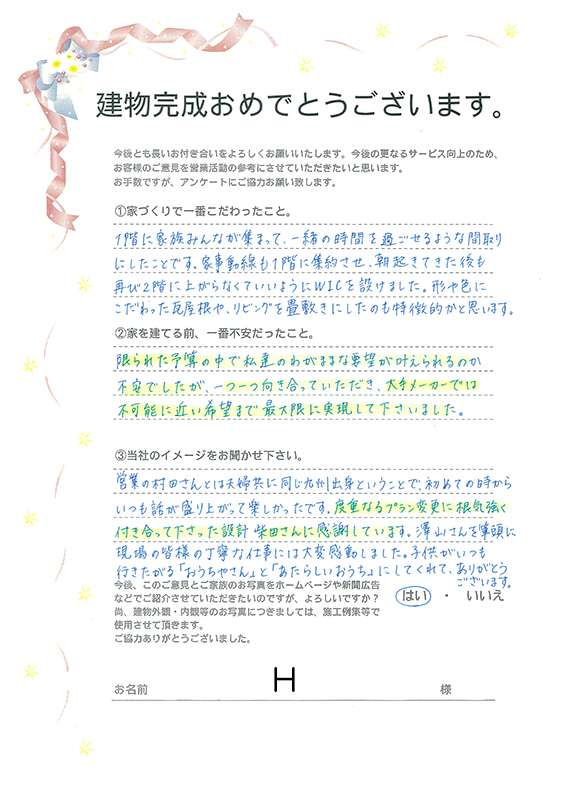 建物完成おめでとうございます。
今後とも長いお付き合いをよろしくお願いいたします。今後の更なるサービス向上のため、
お客様のご意見を営業活動の参考にさせていただきたいと思います。
お手数ですが、アンケートにご協力お願い致します。
①家づくりで一番こだわったこと。
1階に家族みんなが集まって、一緒の時間を過ごせるような間取り
にしたことです。家事動線も1階に集約させ、朝起きてきた後も
再び2階に上がらなくていいようにWICを設けました。形や色に
こだわった瓦屋根や、リビングを畳敷きにしたのも特徴的かと思います。
②家を建てる前、一番不安だったこと。
限られた予算の中で私達のわがままな要望が叶えられるのか
不安でしたが、一つ一つ向き合っていただき、大手メーカーでは
不可能に近い希望まで最大限に実現して下さいました。
③当社のイメージをお聞かせ下さい。
営業の村田さんとは夫婦共に同じ九州出身ということで、初めての時から
いつも話が盛り上がって楽しかったです。度重なるプラン変更に根気強く
付き合って下さった設計 柴田さんに感謝しています。澤山さんを筆頭に
現場の皆様の丁寧な仕事には大変感動しました。子供がいつも
行きたがる「おうちやさん」と「あたらしいおうち」にしてくれて、ありがとう
ございます。
今後、このご意見とご家族のお写真をホームページや新聞広告
などでご紹介させていただきたいのですが、よろしいですか？
はい ・ いいえ
尚、建物外観・内観等のお写真につきましては、施工例集等で
使用させて頂きます。
ご協力ありがとうございました。
お名前 H 様